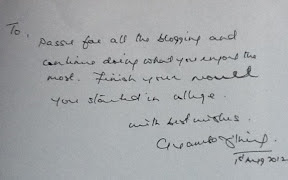 To,
for all the blogging and
continue doing what you enjoy the
most. Finish your novel
you started in college.
with best wishes.
1st Aug 2012